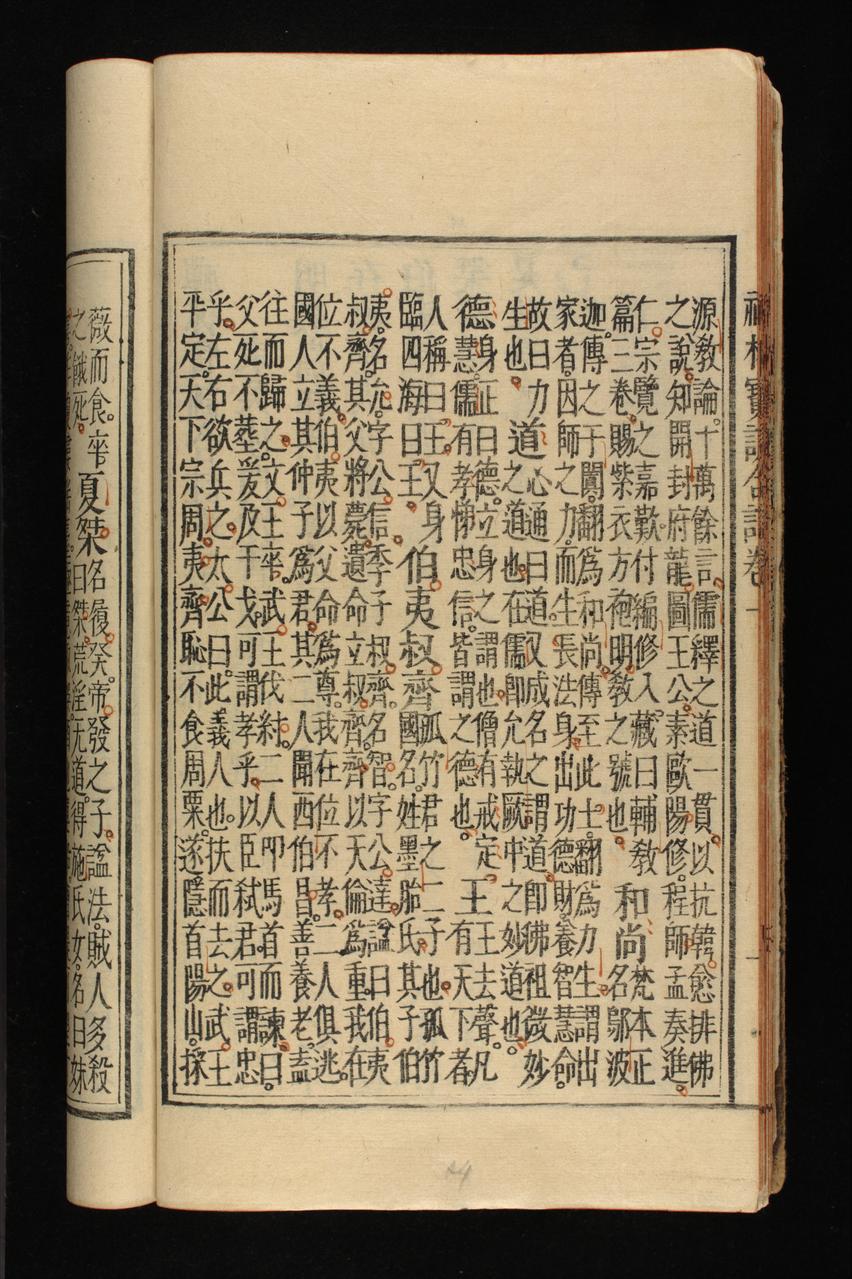 禪林寶訓合註卷一
源教論。十萬餘言。儒釋之道一貫。以抗韓愈排佛
之說。知開封府龍圖王公素歐陽修。程師孟奏進。
仁宗覽之嘉歎。付編修入藏。曰輔教
篇三卷。賜紫衣方袍。明教之號也。
和尚
梵本正
名鄔波
迦。傳之于闐。翻爲和尚。傳至此土。翻爲力生。謂出
家者。因師之力。而生長法身。出功德財。養智慧命。
故曰力
生也。
道
心通曰道。又成名之謂道。即佛祖微妙
之道也。在儒即允執厥中之妙道也。
德
身正曰德。立身之謂也。僧有戒定
慧。儒有孝悌忠信。皆謂之德也。
王
王去聲。凡
有天下者
人稱曰王。又身
臨四海曰王。
伯夷叔齊
孤竹君之二子也。孤竹
國名。姓墨胎氏。其子伯
夷。名允。字公信。季子叔齊。名智。字公達。諡曰伯夷
叔齊。其父將薨。遺命立叔齊。齊以天倫爲重。我在
位不義。伯夷以父命爲尊。我在位不孝。二人俱逃。
國人立其仲子爲君。其二人聞西伯昌。善養老。盍
往而歸之。文王卒。武王伐紂。二人叩馬首而諫。曰。
父死不葬。爰及干戈。可謂孝乎。以臣弒君。可謂忠
乎。左右欲兵之。太公曰。此義人也。扶而去之。武王
平定。天下宗周。夷齊恥不食周粟。遂隱首陽山。採
薇而食。卒
之餓死。
夏桀
名復癸。帝發之子。諡法。賊人多殺
曰桀。荒淫无道。得施氏女。名曰妹